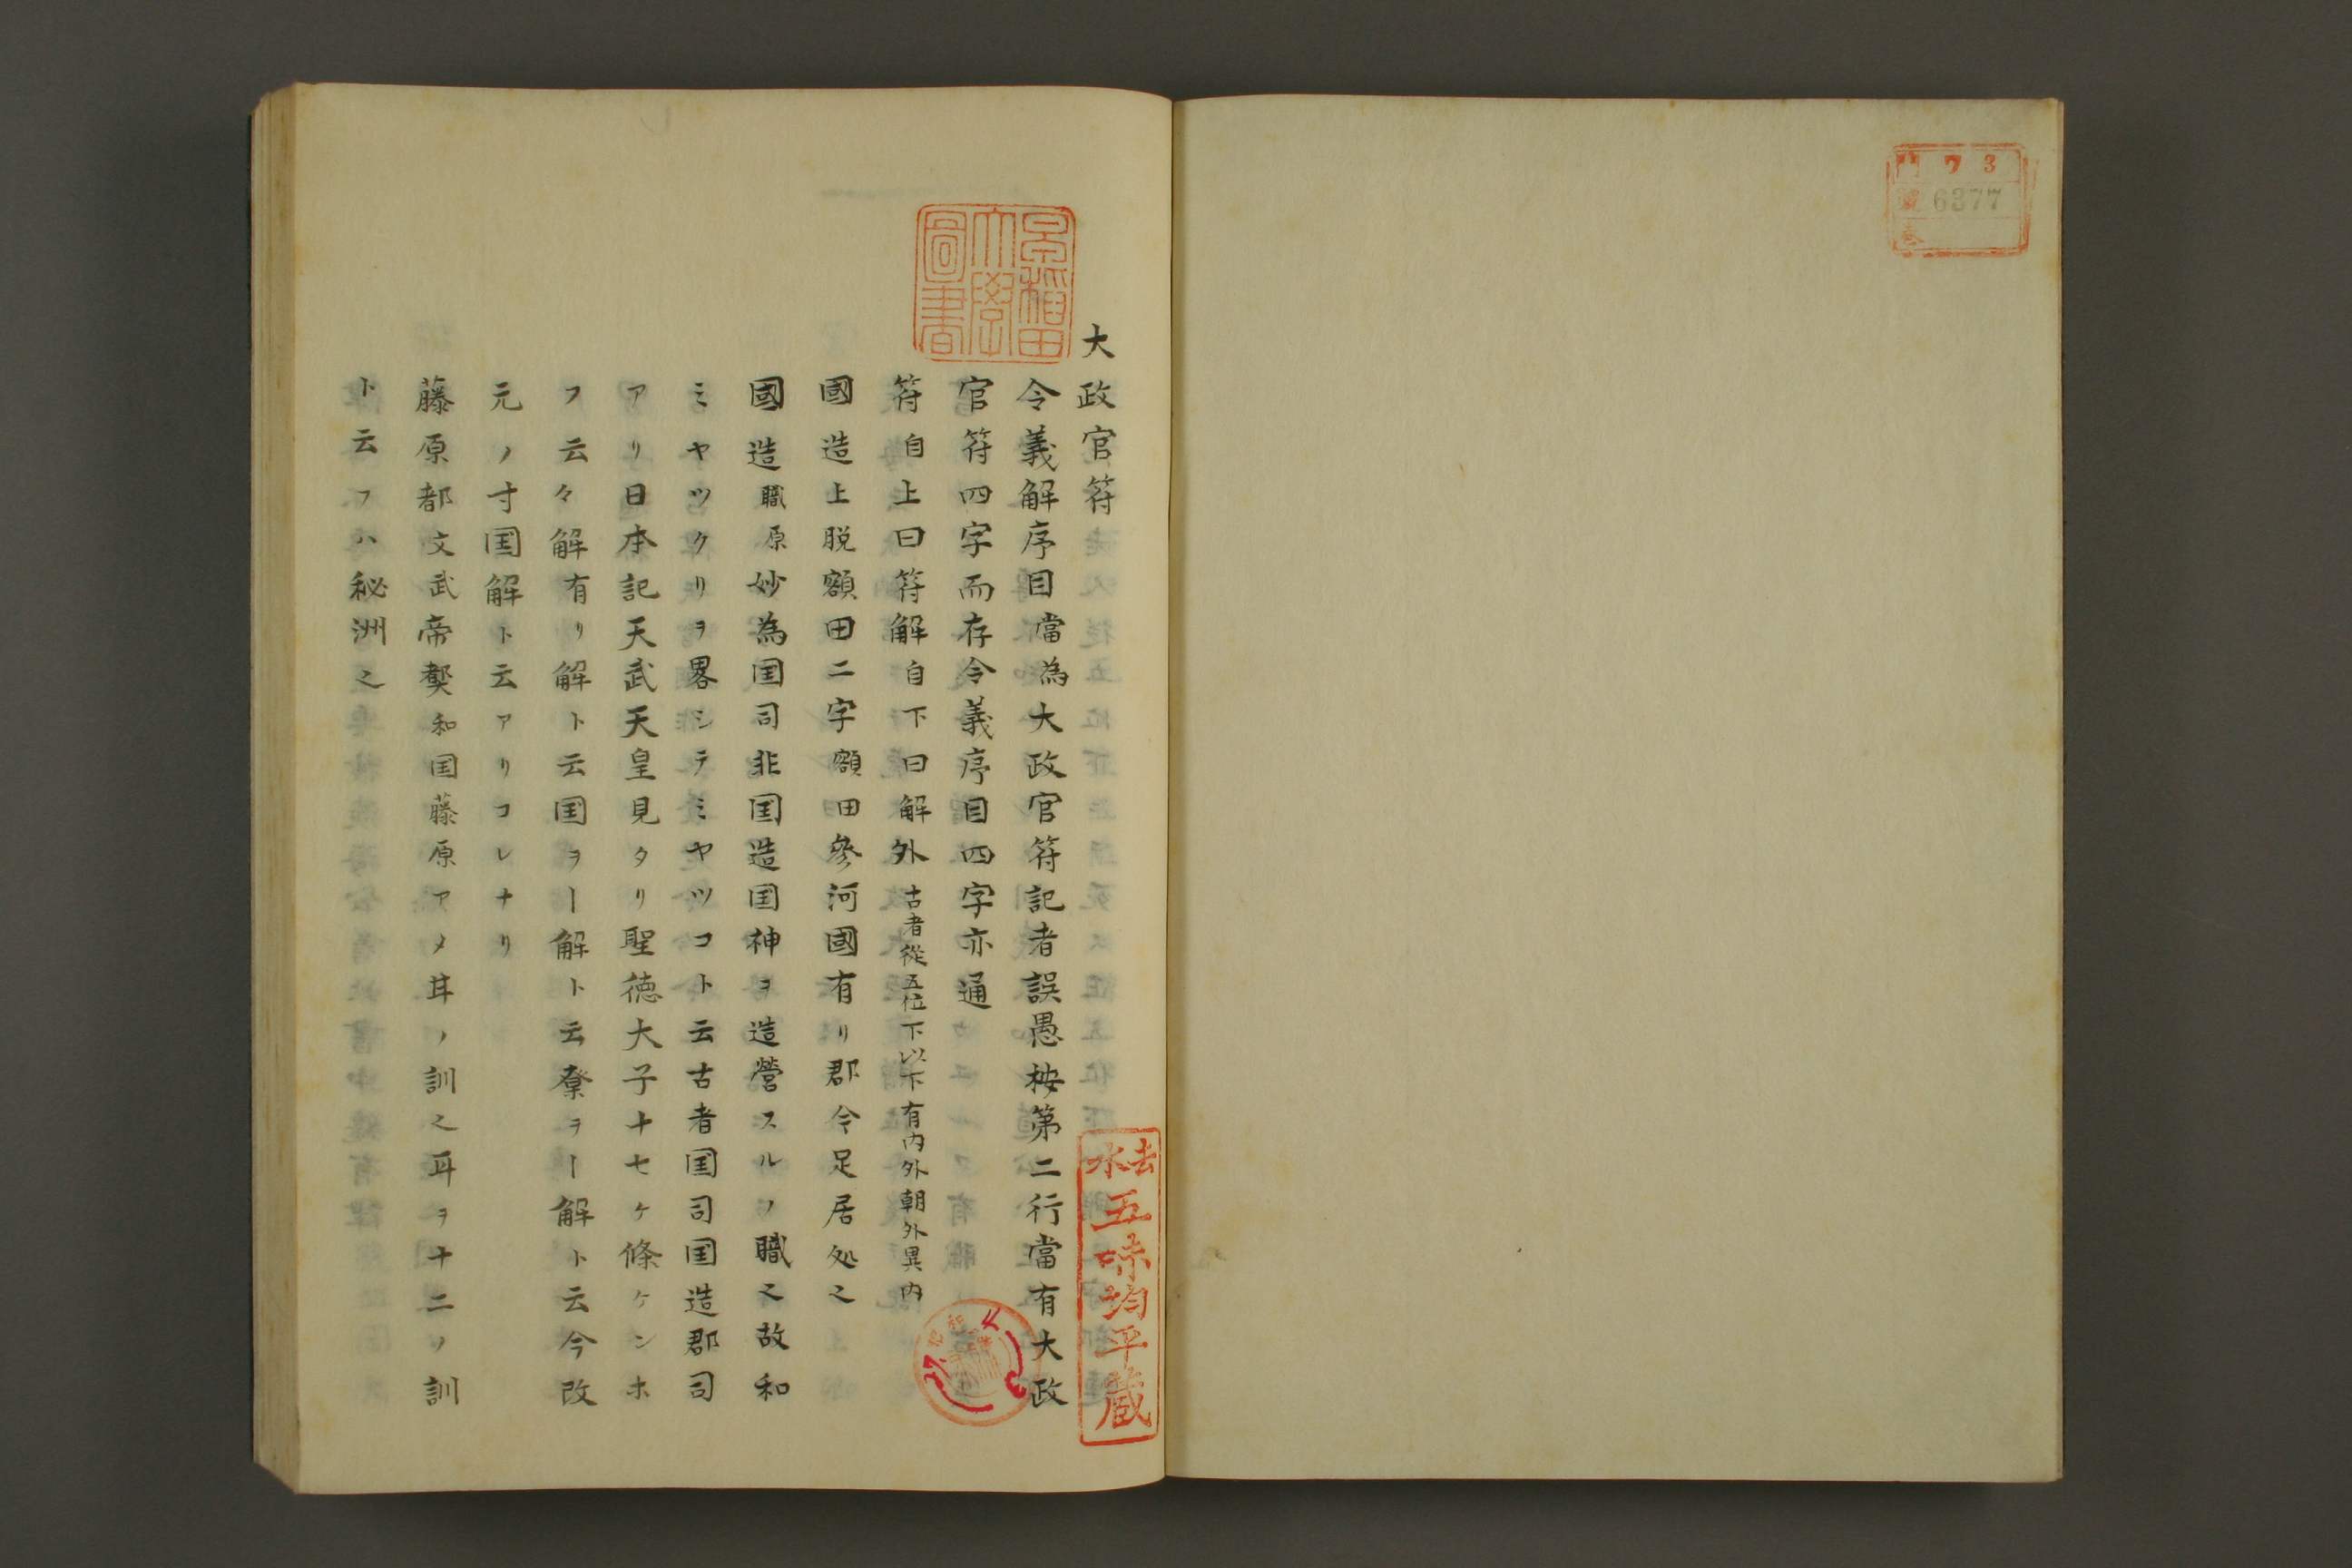 門 ワ 3
號 6377
卷
早稲田
大學
圖書
大政官符
令義解序目當為大政官符記者誤愚桉第二行當有大政
官符四字而存令義序目四字亦通
符自上曰符解自下曰解外古者從五位下以下有内外朝外異内
國造上脱額田二字額田參河國有リ郡今足居処之
國造職原妙為国司非国造国神ヲ造營スルノ職之故和
ミヤツクリヲ畧シテミヤツコト云古者国司国造郡司
アリ日本記天武天皇見タリ聖徳大子十七ケ條ケンホ
フ云々解有リ解ト云国ヲー解ト云寮ヲー解ト云今改
元ノ寸国解ト云アリコレナリ
藤原都文武帝和国藤原アメ井ノ訓之耳ヲ十二ノ訓
ト云フハ秘洲之
五味均平蔵